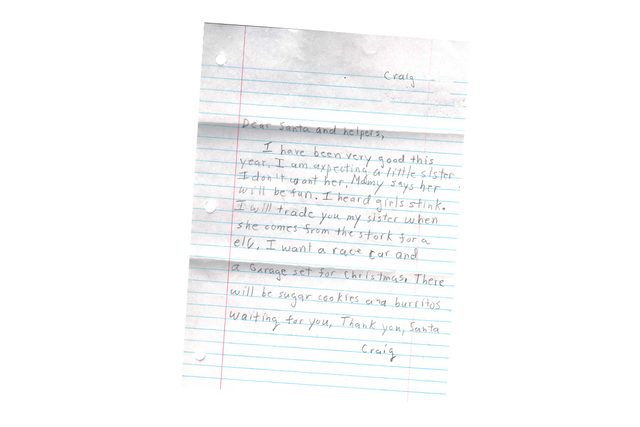 Craig
Dear Santa and helpers,
I have been very good this
year. I am expecting a little sister
I don't want her. Mamy says her
will be fun. I heard girls stink.
I will trade you my sister when
she comes from the stork for a
elf. I want a race car and
a Garage set for Christmas. There
will be sugar cookies and burritos
waiting for you, Thank you, Santa
Craig